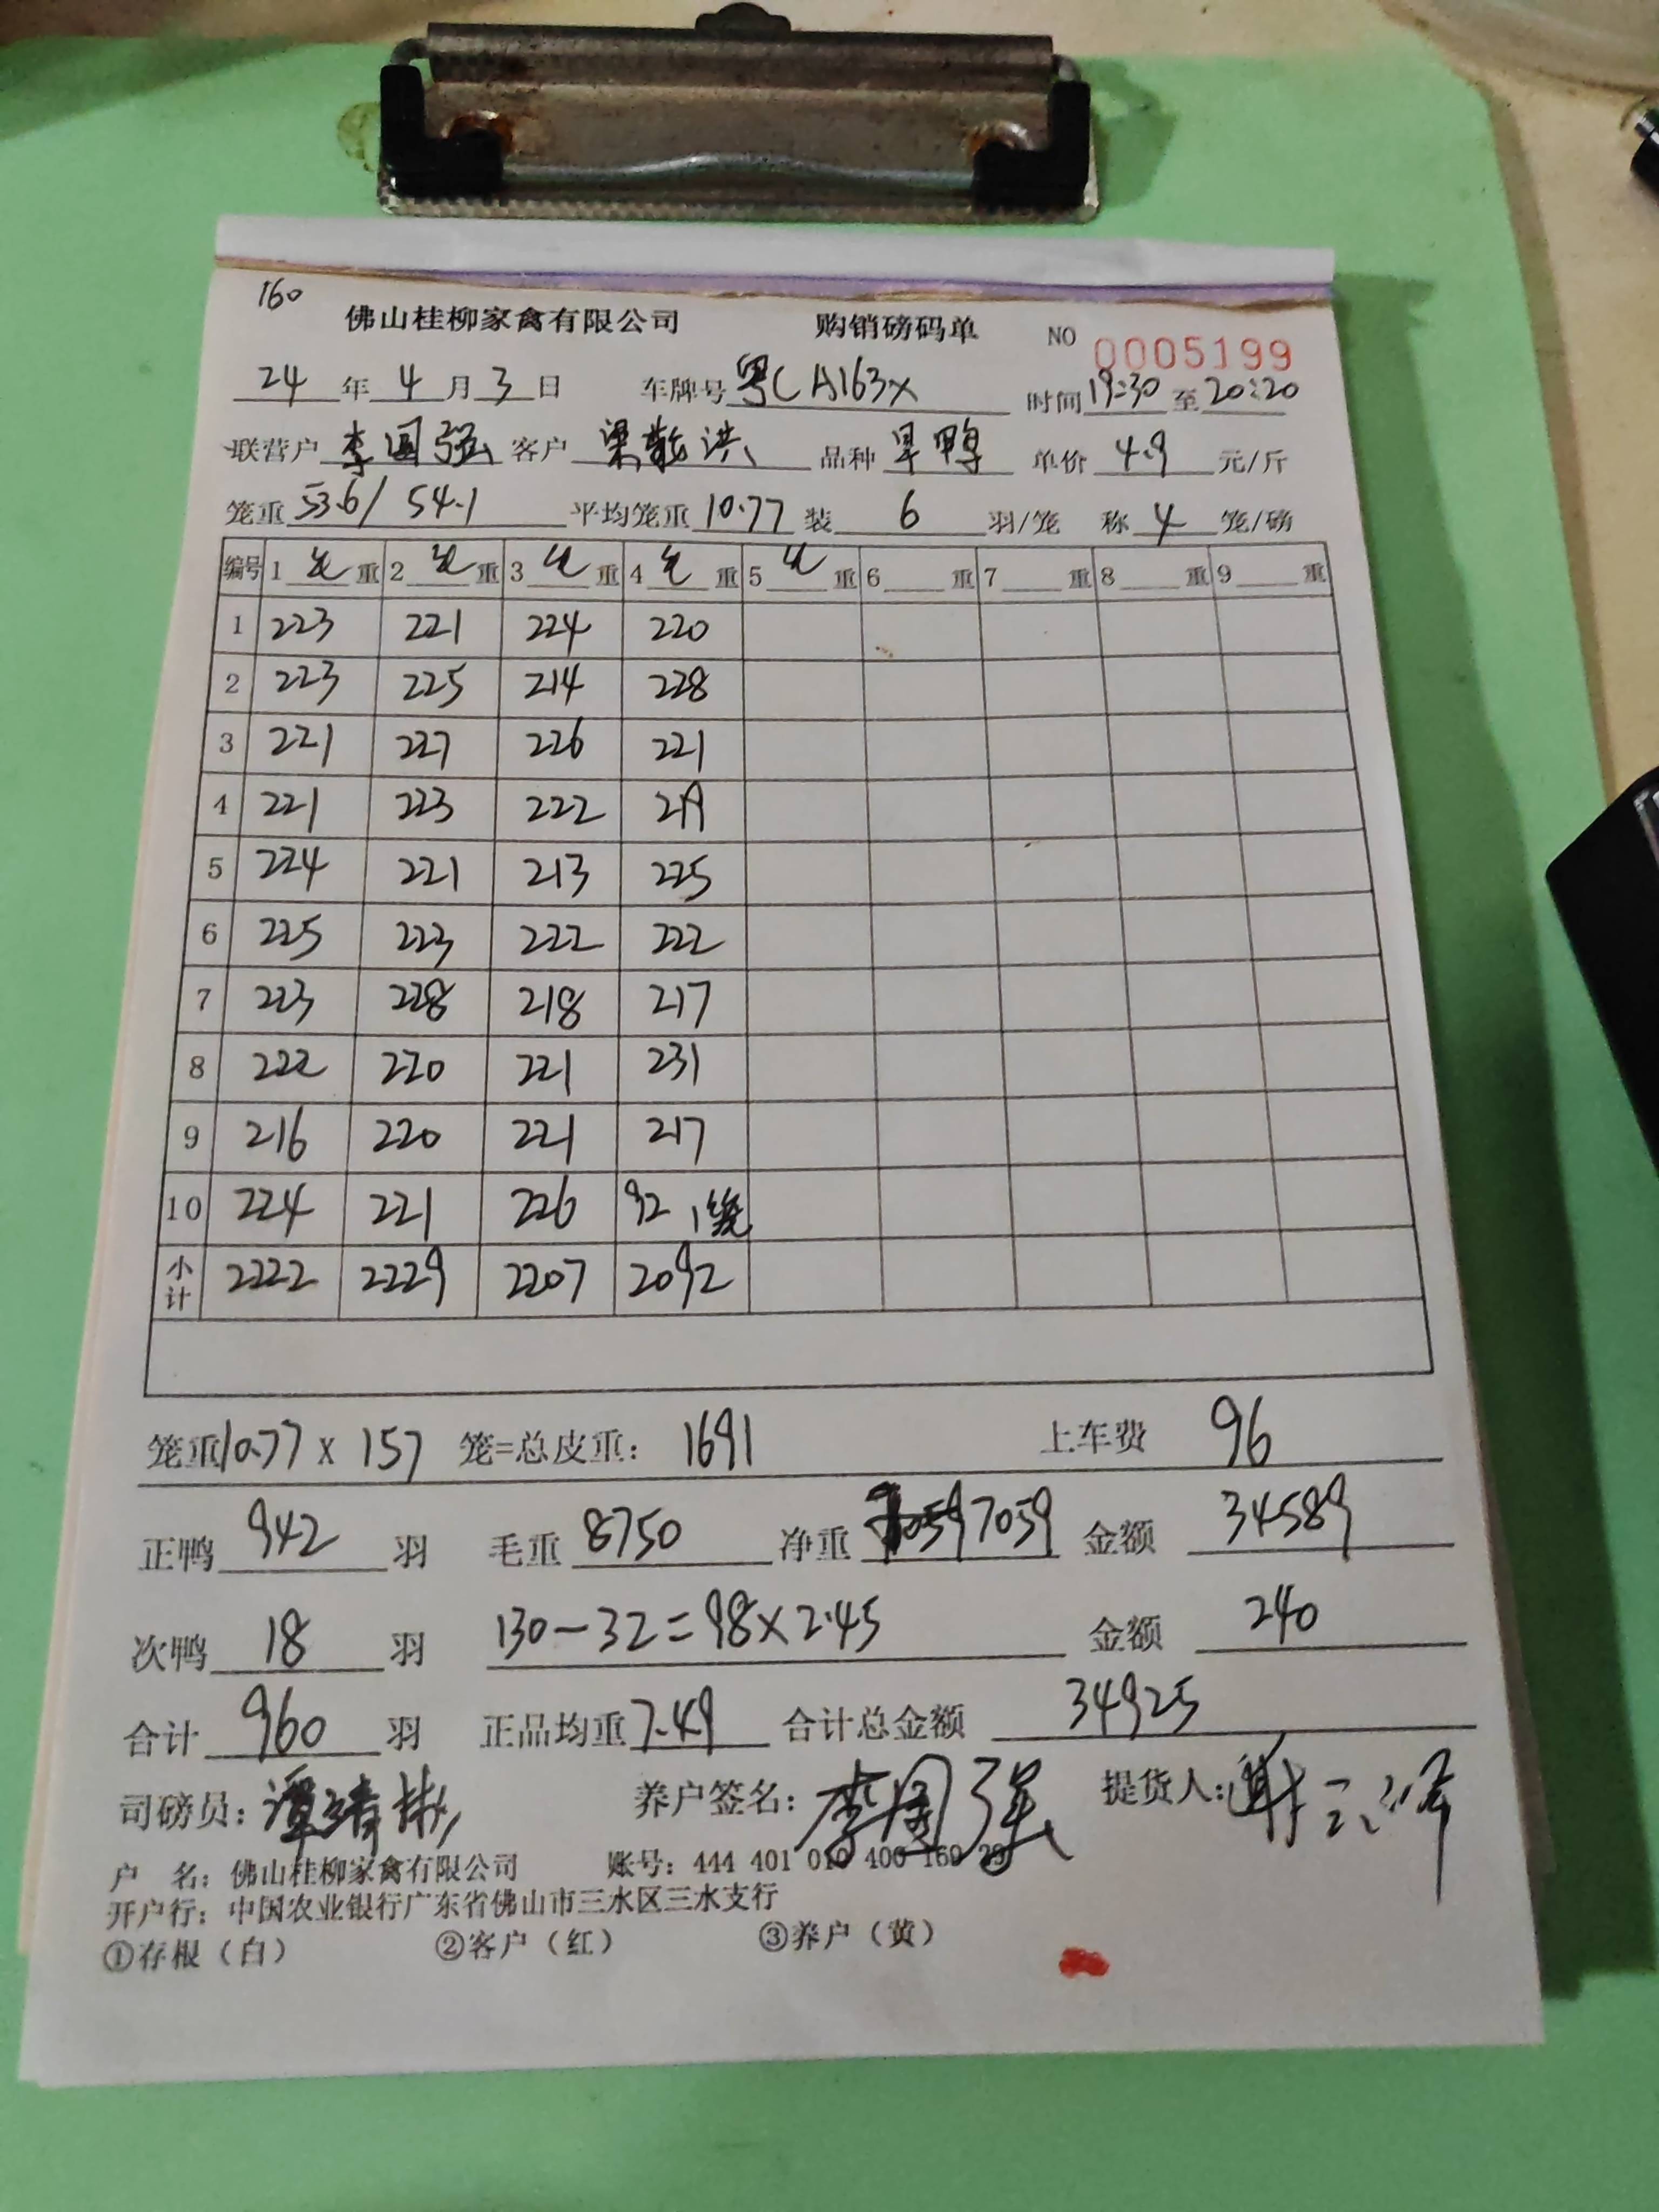 160
佛山桂柳家禽有限公司 购销磅码单 NO 0005199
24 年 4 月 3 日 车牌号 粤CA163X 时间 19:30 至 20:20
联营户 李国强 客户 梁乾洪 品种 旱鸭 单价 4.9 元/斤
笼重 53.6/ 54.1 平均笼重 10.77 装 6 羽/笼 称 4 笼/磅
编号 1 重 2 重 3 重 4 重 5 重 6 重 7 重 8 重 9 重
1 223 221 224 220
2 223 225 214 228
3 221 227 226 221
4 221 223 222 219
5 224 221 213 225
6 225 223 222 222
7 223 228 218 217
8 222 220 221 231
9 216 220 221 217
10 224 221 226 92 1笼
小计 2222 2229 2207 2092
笼重10.77 x 157 笼=总皮重: 1691 上车费 96
正鸭 942 羽 毛重 8750 净重 7059 金额 34589
次鸭 18 羽 130-32=98×2.45 金额 240
合计 960 羽 正品均重 7.49 合计总金额 34925
司磅员: 谭靖彬 养户签名: 李国强 提货人: 谢
户 名: 佛山桂柳家禽有限公司 账号: 444 401 010 400 169
开户行: 中国农业银行广东省佛山市三水区三水支行
①存根(白) ②客户(红) ③养户(黄)